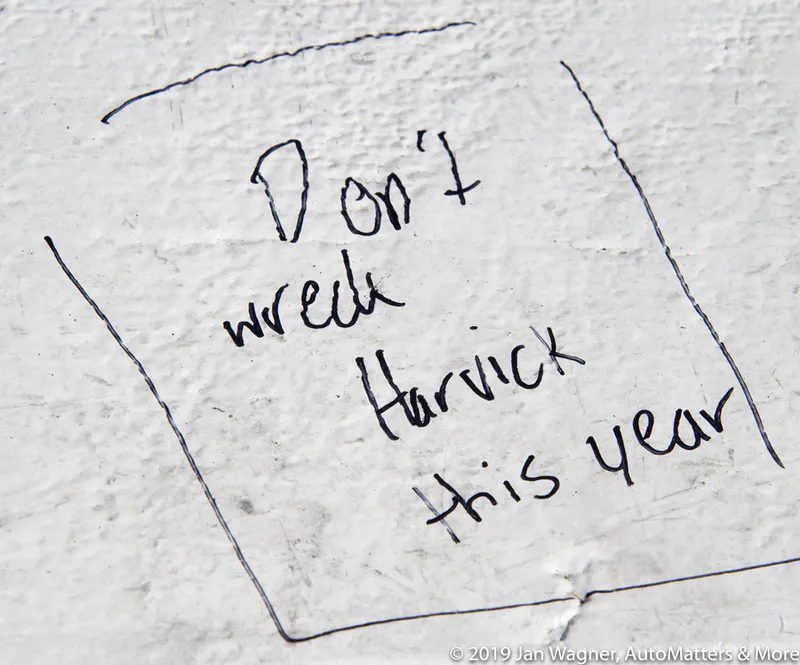 Don't
wreck
Harvick
this year
© 2019 Jan Wagner, AutoMatters & More